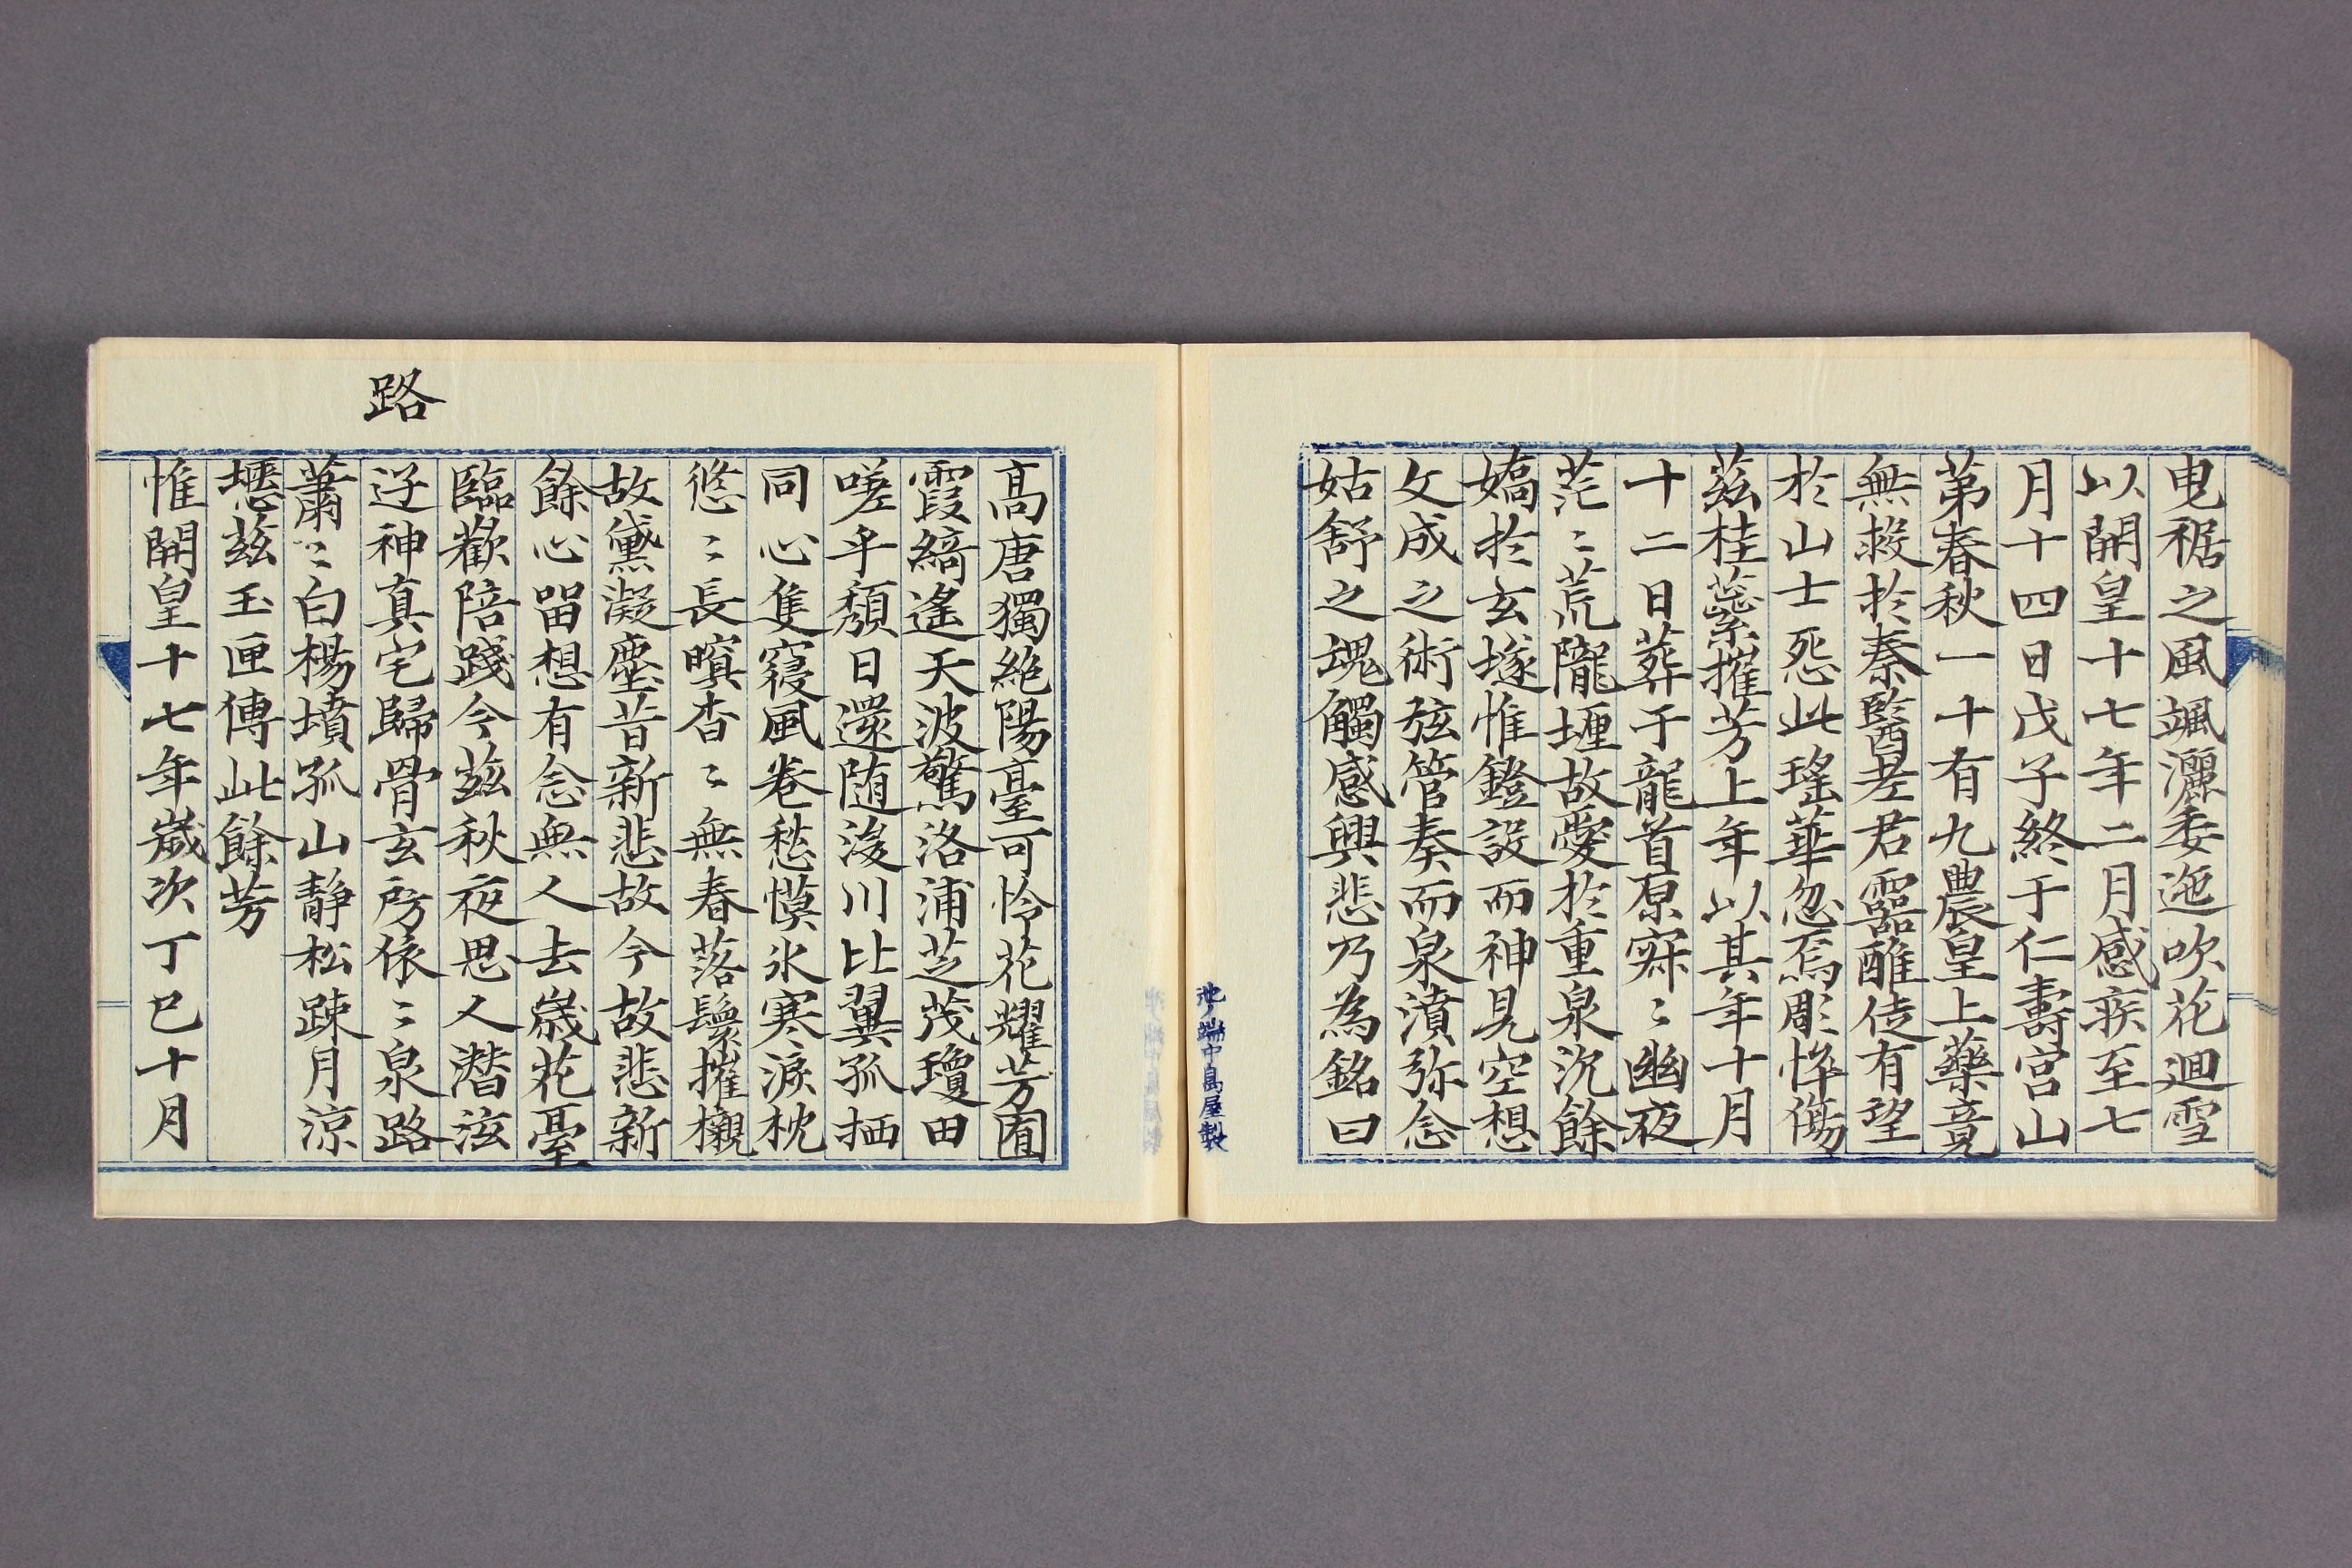 曳裾之風颯灑委迤吹花迴雪
以開皇十七年二月感疾至七
月十四日戊子終于仁壽宮山
苐春秋一十有九農皇上藥竟
無救於秦醫老君靈醮徒有望
於山士怨此瑤華忽焉彫悴傷
茲桂蘂摧芳上年以其年十月
十二日葬于龍首原寂〻幽夜
茫〻荒隴埋故愛於重泉沉餘
嬌於玄墜惟鐙設而神見空想
文成之術弦管奏而泉濆弥念
姑舒之魂觸感興悲乃為銘曰
高唐獨絶陽臺可怜花耀芳囿
霞綺遙天波驚洛浦芝茂瓊田
嗟乎頹日還随浚川比翼孤栖
同心隻寢風卷愁慔氷寒淚枕
悠〻長暝杳〻無春落鬟摧櫬
故黛凝塵昔新悲故今故悲新
餘心留想有念無人去歲花臺
臨歡陪踐今茲秋夜思人潛泫
迓神真宅歸骨玄房依〻泉路
路
蕭〻白楊墳孤山靜松踈月涼
壥茲玉匣傳此餘芳
惟開皇十七年歲次丁巳十月
池ノ端中島屋製